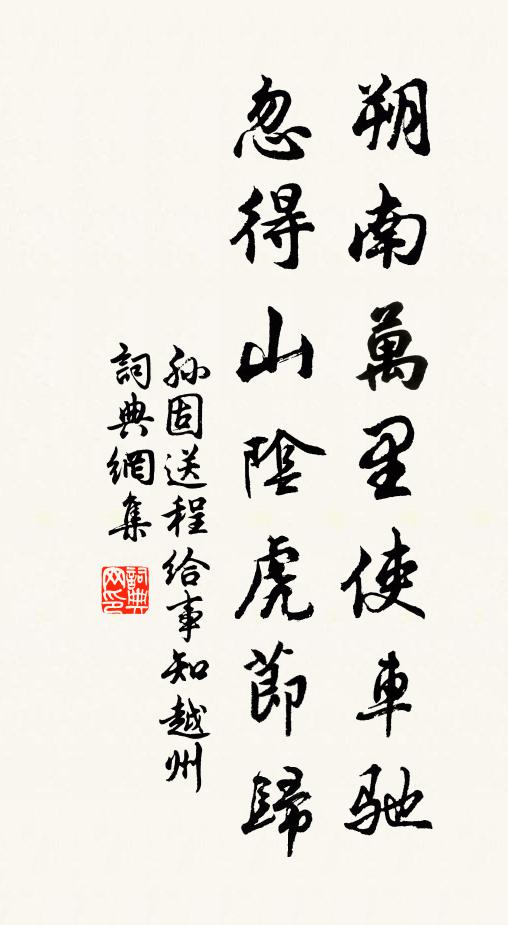 朔南萬里使車馳
忽得山陰虎節歸
孫固送程給事知越州
詞典網集
詞典網印